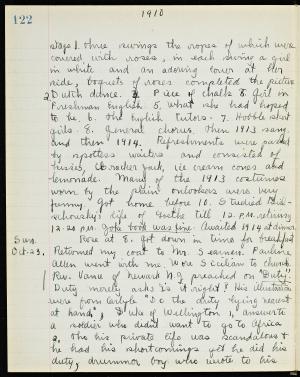 122
1910
stage 1. three swings the ropes of which were
covered with roses, in each swing a girl
in white and an adoring lover at her
side, boquets of roses completed the picture
2. Dutch dance. 3. Piece of chalk 4. Girl in
Freshman English 5. What she had hoped
to be. 6. The English tutors. 7. Hobble skirt
girls. 8. General chorus. Then 1913 sang
and then 1914. Refreshments were passed
by spotless waiters and consisted of
kisses, Cracker jack, ice cream cones and
lemonade. Many of the 1913 costumes
worn by the plain onlookers were very
funny. Got home before 10. Studied
life of Goethe till 12 P.M. retiring
12:20 P.M. Yoke book was fine. Awaited 1914 at dinner.
Sun.
Oct. 23.
Rose at 8. got down in time for breakfast
Returned my coat to Mr. Seaman. Pauline
Allen went with me. Wore S cilian to church
Rev. Vance of Newark N.J. preached on "Duty".
Duty merely asks is it right? His illustrations
were from Carlyle "Do the duty lying nearest
at hand", Duke of Wellington 1, answer to
a soldier who didn't want to go to Africa
2, tho his private life was scandalous &
he had his shortcomings yet he did his
duty, drummer boy who wrote to his